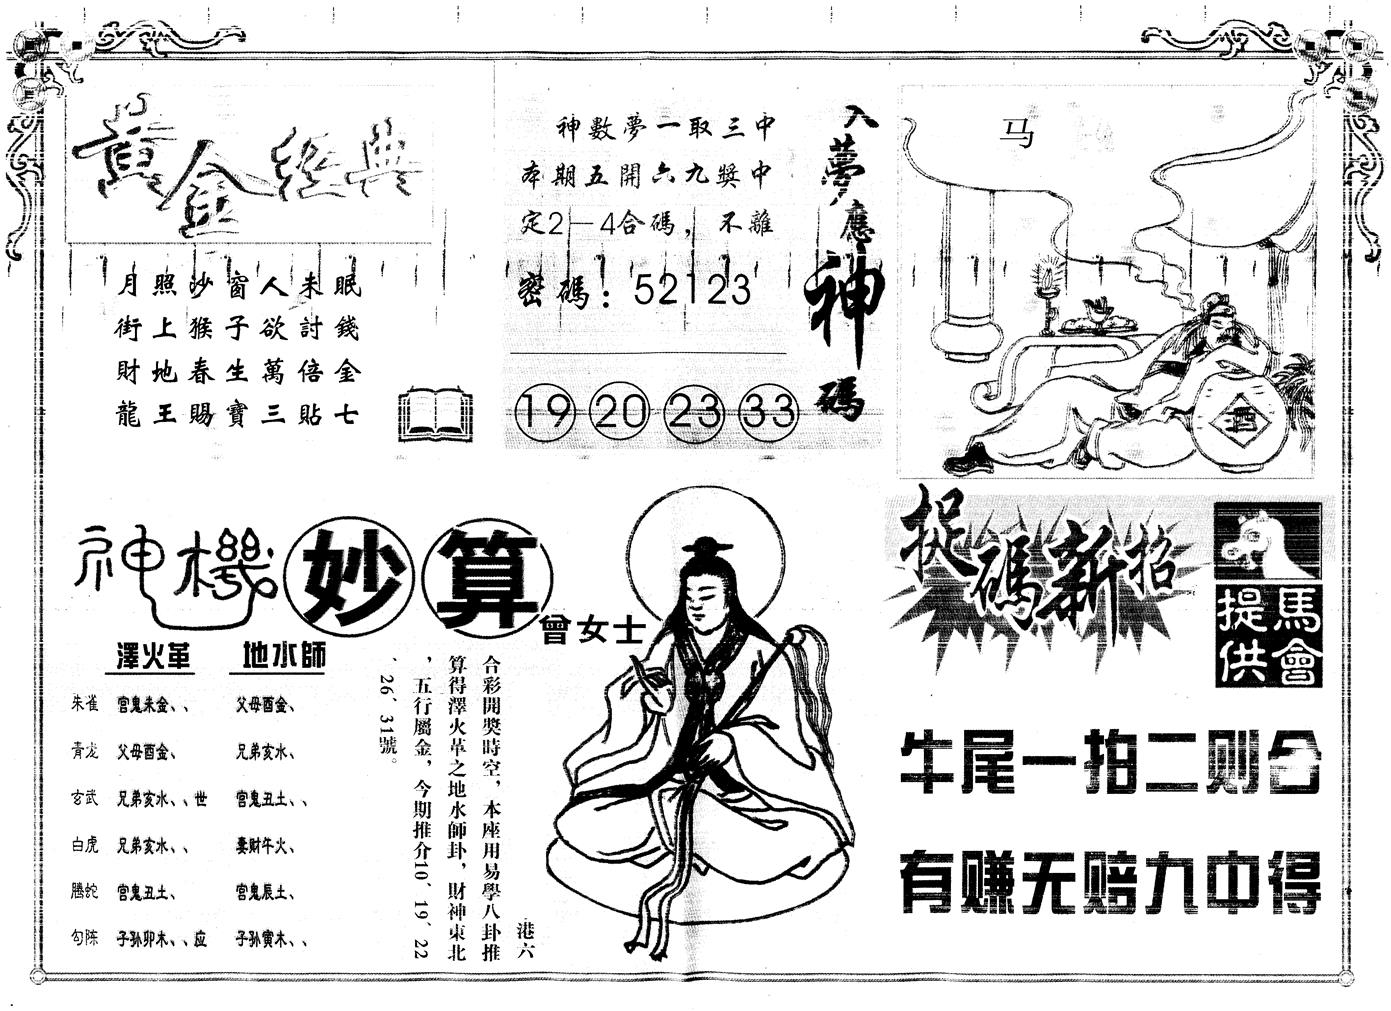 黃金經典
月照沙窗人未眠
街上猴子欲討錢
財地春生萬倍金
龍王賜寶三貼七
神數夢一取三中
本期五開六九獎中
定2—4合碼，不離
密碼：52123
19 20 23 33
入夢應神碼
马
酒
神機妙算
曾女士
澤火革 地水師
朱雀 官鬼未金、、 父母酉金、
青龙 父母酉金、 兄弟亥水、
玄武 兄弟亥水、、世 官鬼丑土、、
白虎 兄弟亥水、、 妻财午火、
腾蛇 官鬼丑土、 官鬼辰土、
勾陈 子孙卯木、、应 子孙寅木、、
港六
合彩開獎時空，本座用易學八卦推
算得澤火革之地水師卦，財神東北
，五行屬金，今期推介10、19、22
、26、31號。
捉碼新招
馬會提供
牛尾一拍二则合
有赚无赔九中得